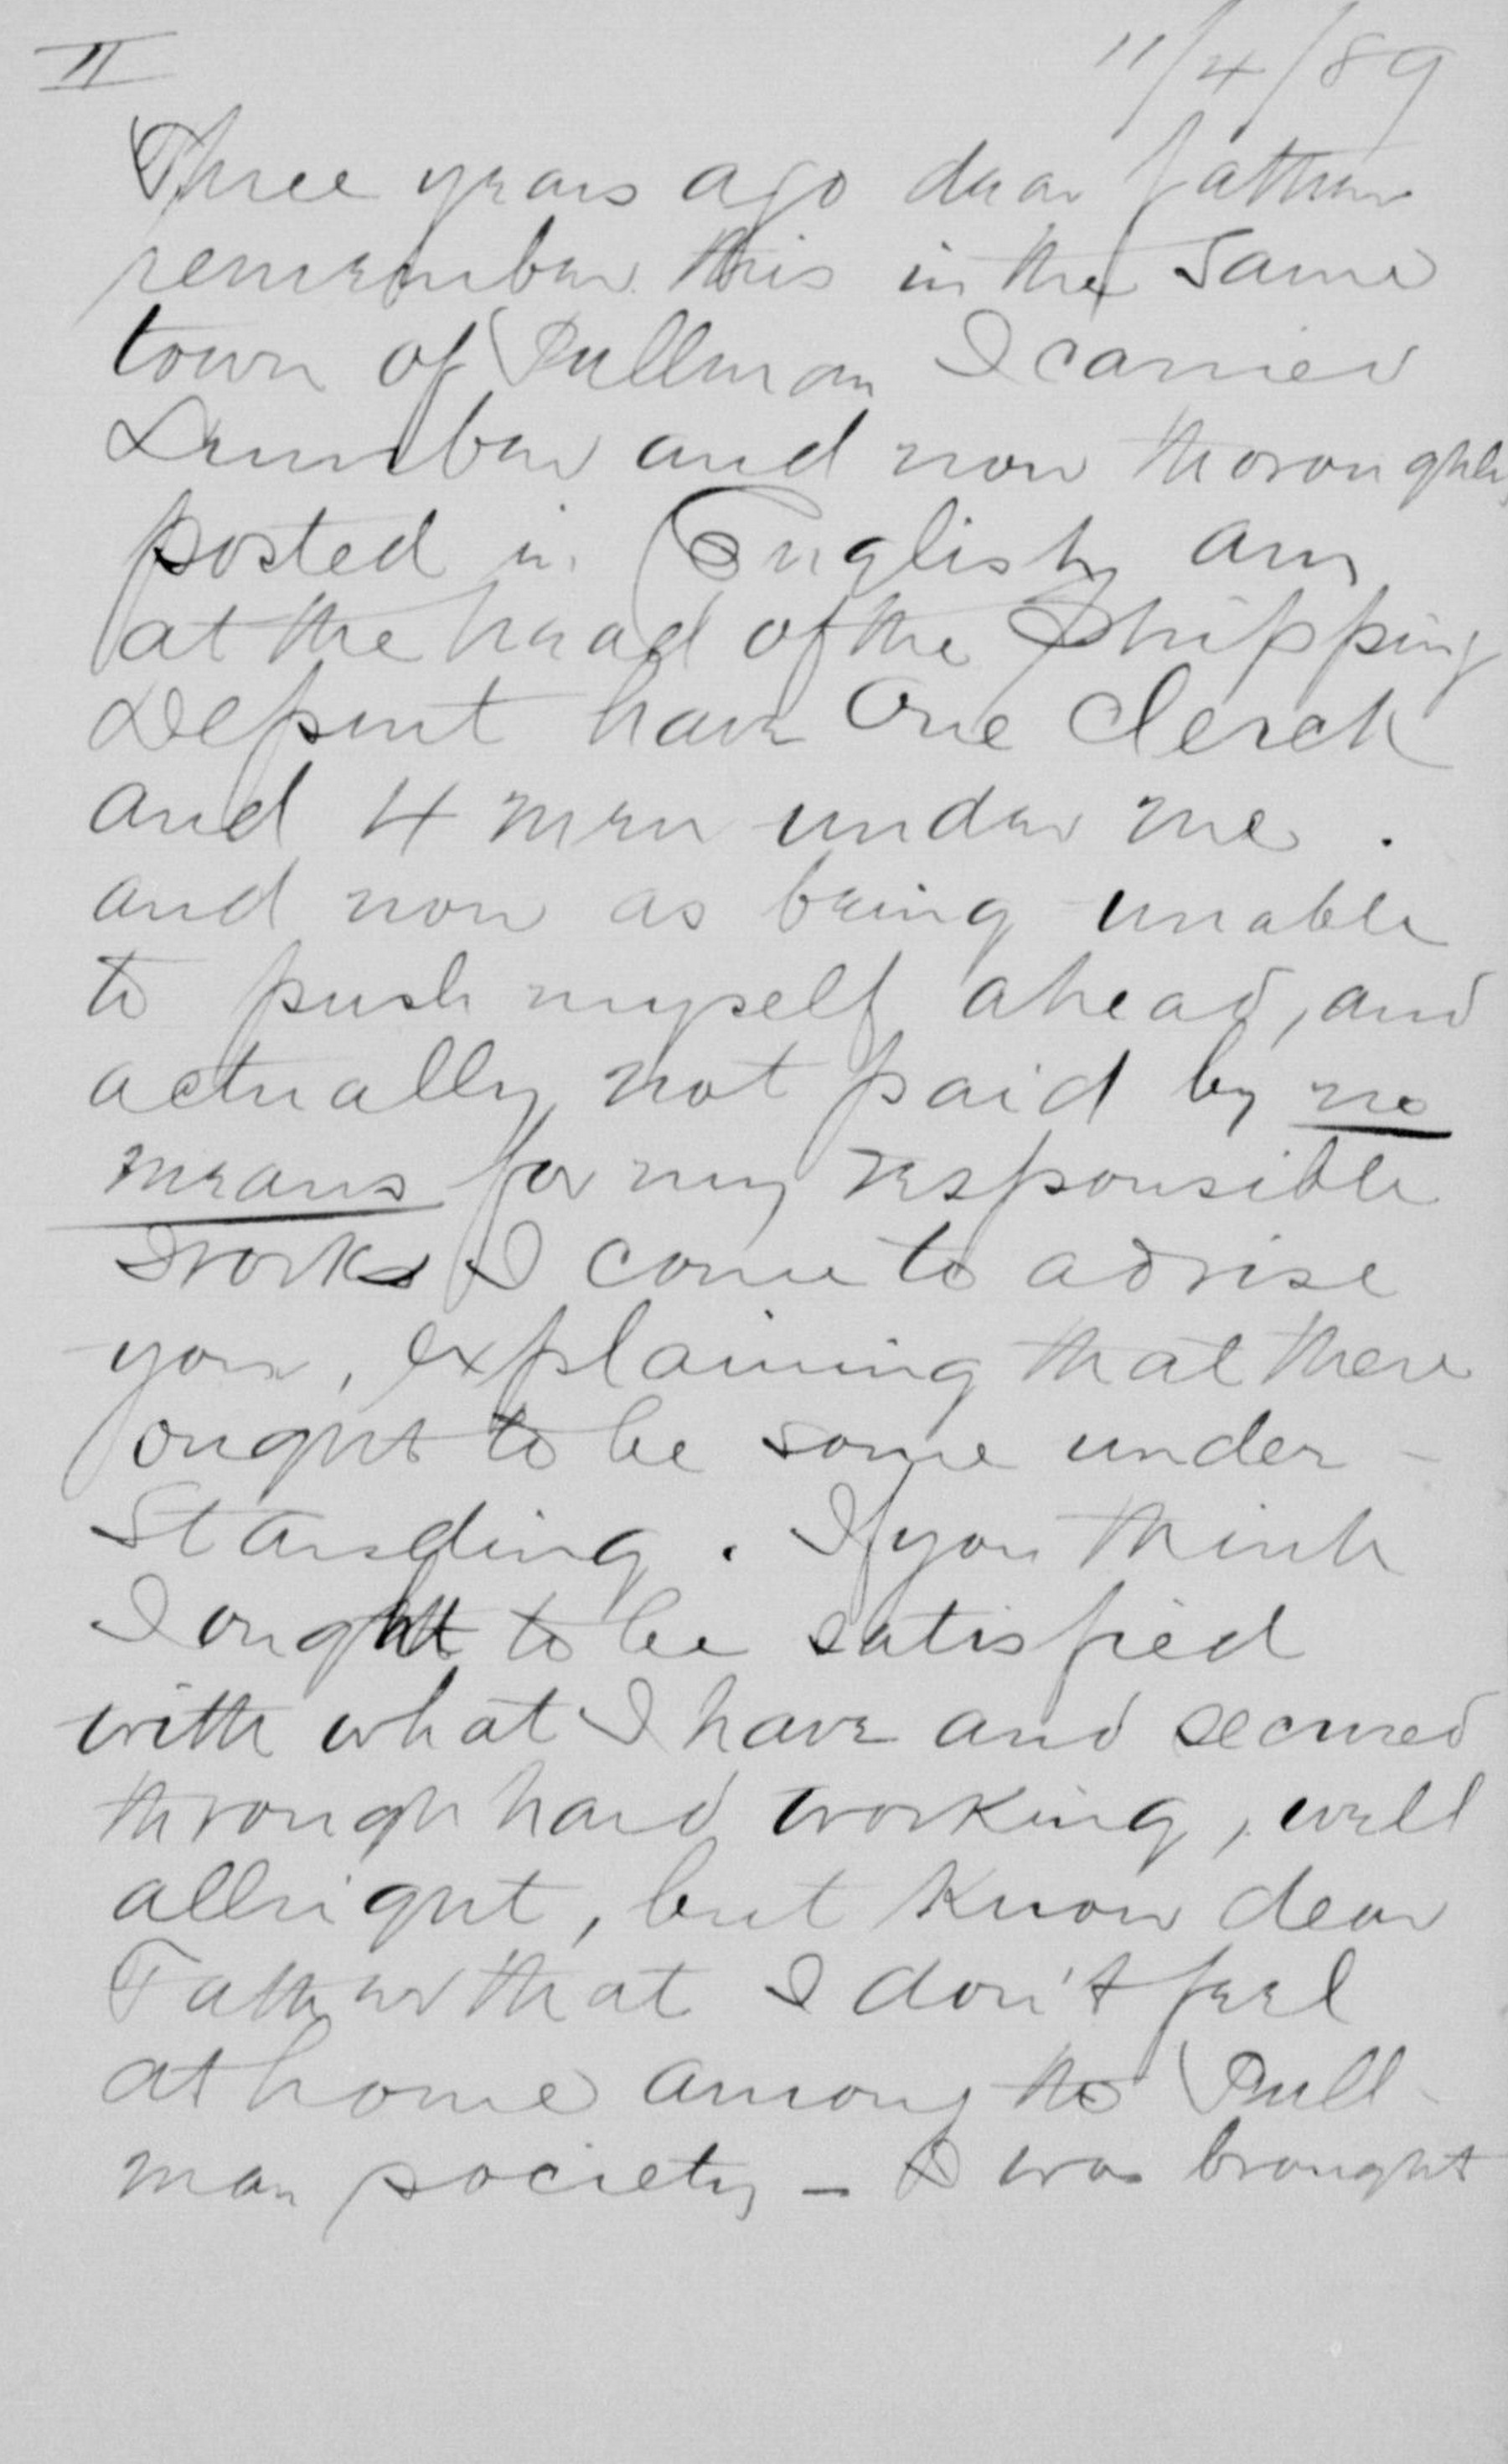 II
11/4/89
Three years ago dear father
remember this in the same
town of Pullman I carried
Lumber and now thoroughly
posted in English am
at the head of the Shipping
Depmt have One Clerck
and 4 men under me .
and now as being unable
to push myself ahead, and
actually not paid by no
means for my responsible
works I come to advise
you, explaining that there
ought to be some under-
standing. If you think
I ought to be satisfied
with what I have and secured
through hard working, well
allright, but know dear
Father that I don't feel
at home among the Pull-
man society - I was brought